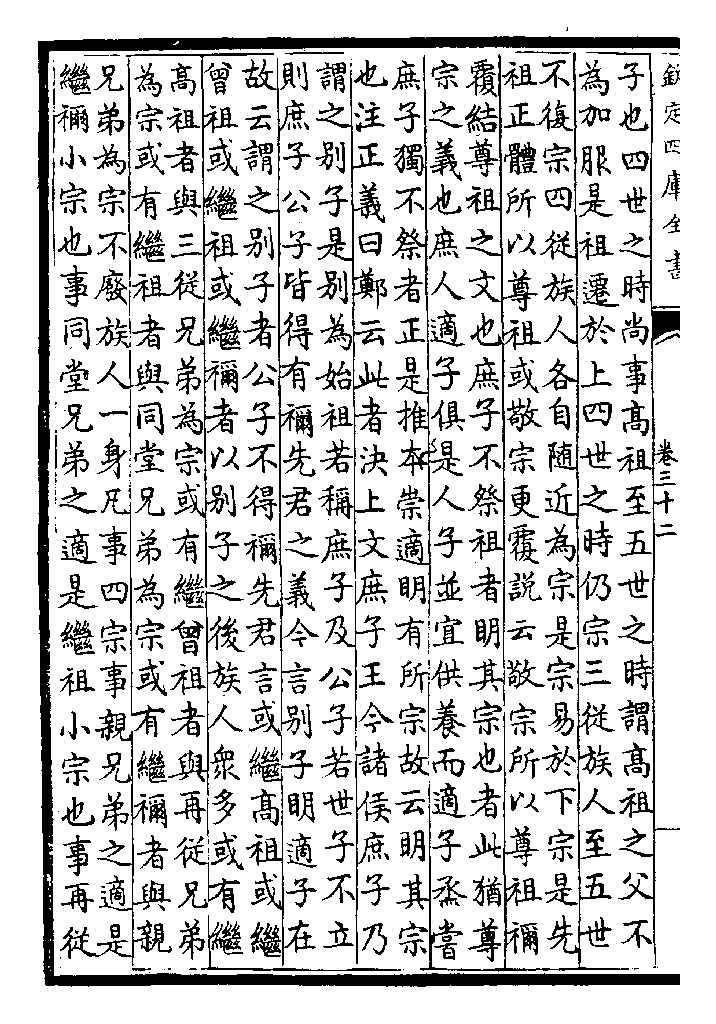 欽定四庫全書
卷三十二
子也四世之時尚事髙祖至五世之時謂髙祖之父不
為加服是祖遷於上四世之時仍宗三從族人至五世
不復宗四從族人各自隨近為宗是宗易於下宗是先
祖正體所以尊祖或敬宗更覆説云敬宗所以尊祖禰
覆結尊祖之文也庶子不祭祖者明其宗也者此猶尊
宗之義也庶人適子俱是人子並宜供養而適子烝嘗
庶子獨不祭者正是推本崇適明有所宗故云明其宗
也注正義曰鄭云此者決上文庶子王今諸侯庶子乃
謂之别子是别為始祖若稱庶子及公子若世子不立
則庶子公子皆得有禰先君之義今言别子明適子在
故云謂之别子者公子不得禰先君言或繼髙祖或繼
曾祖或繼祖或繼禰者以别子之後族人衆多或有繼
髙祖者與三從兄弟為宗或有繼曾祖者與再從兄弟
為宗或有繼祖者與同堂兄弟為宗或有繼禰者與親
兄弟為宗不廢族人一身凡事四宗事親兄弟之適是
繼禰小宗也事同堂兄弟之適是繼祖小宗也事再從